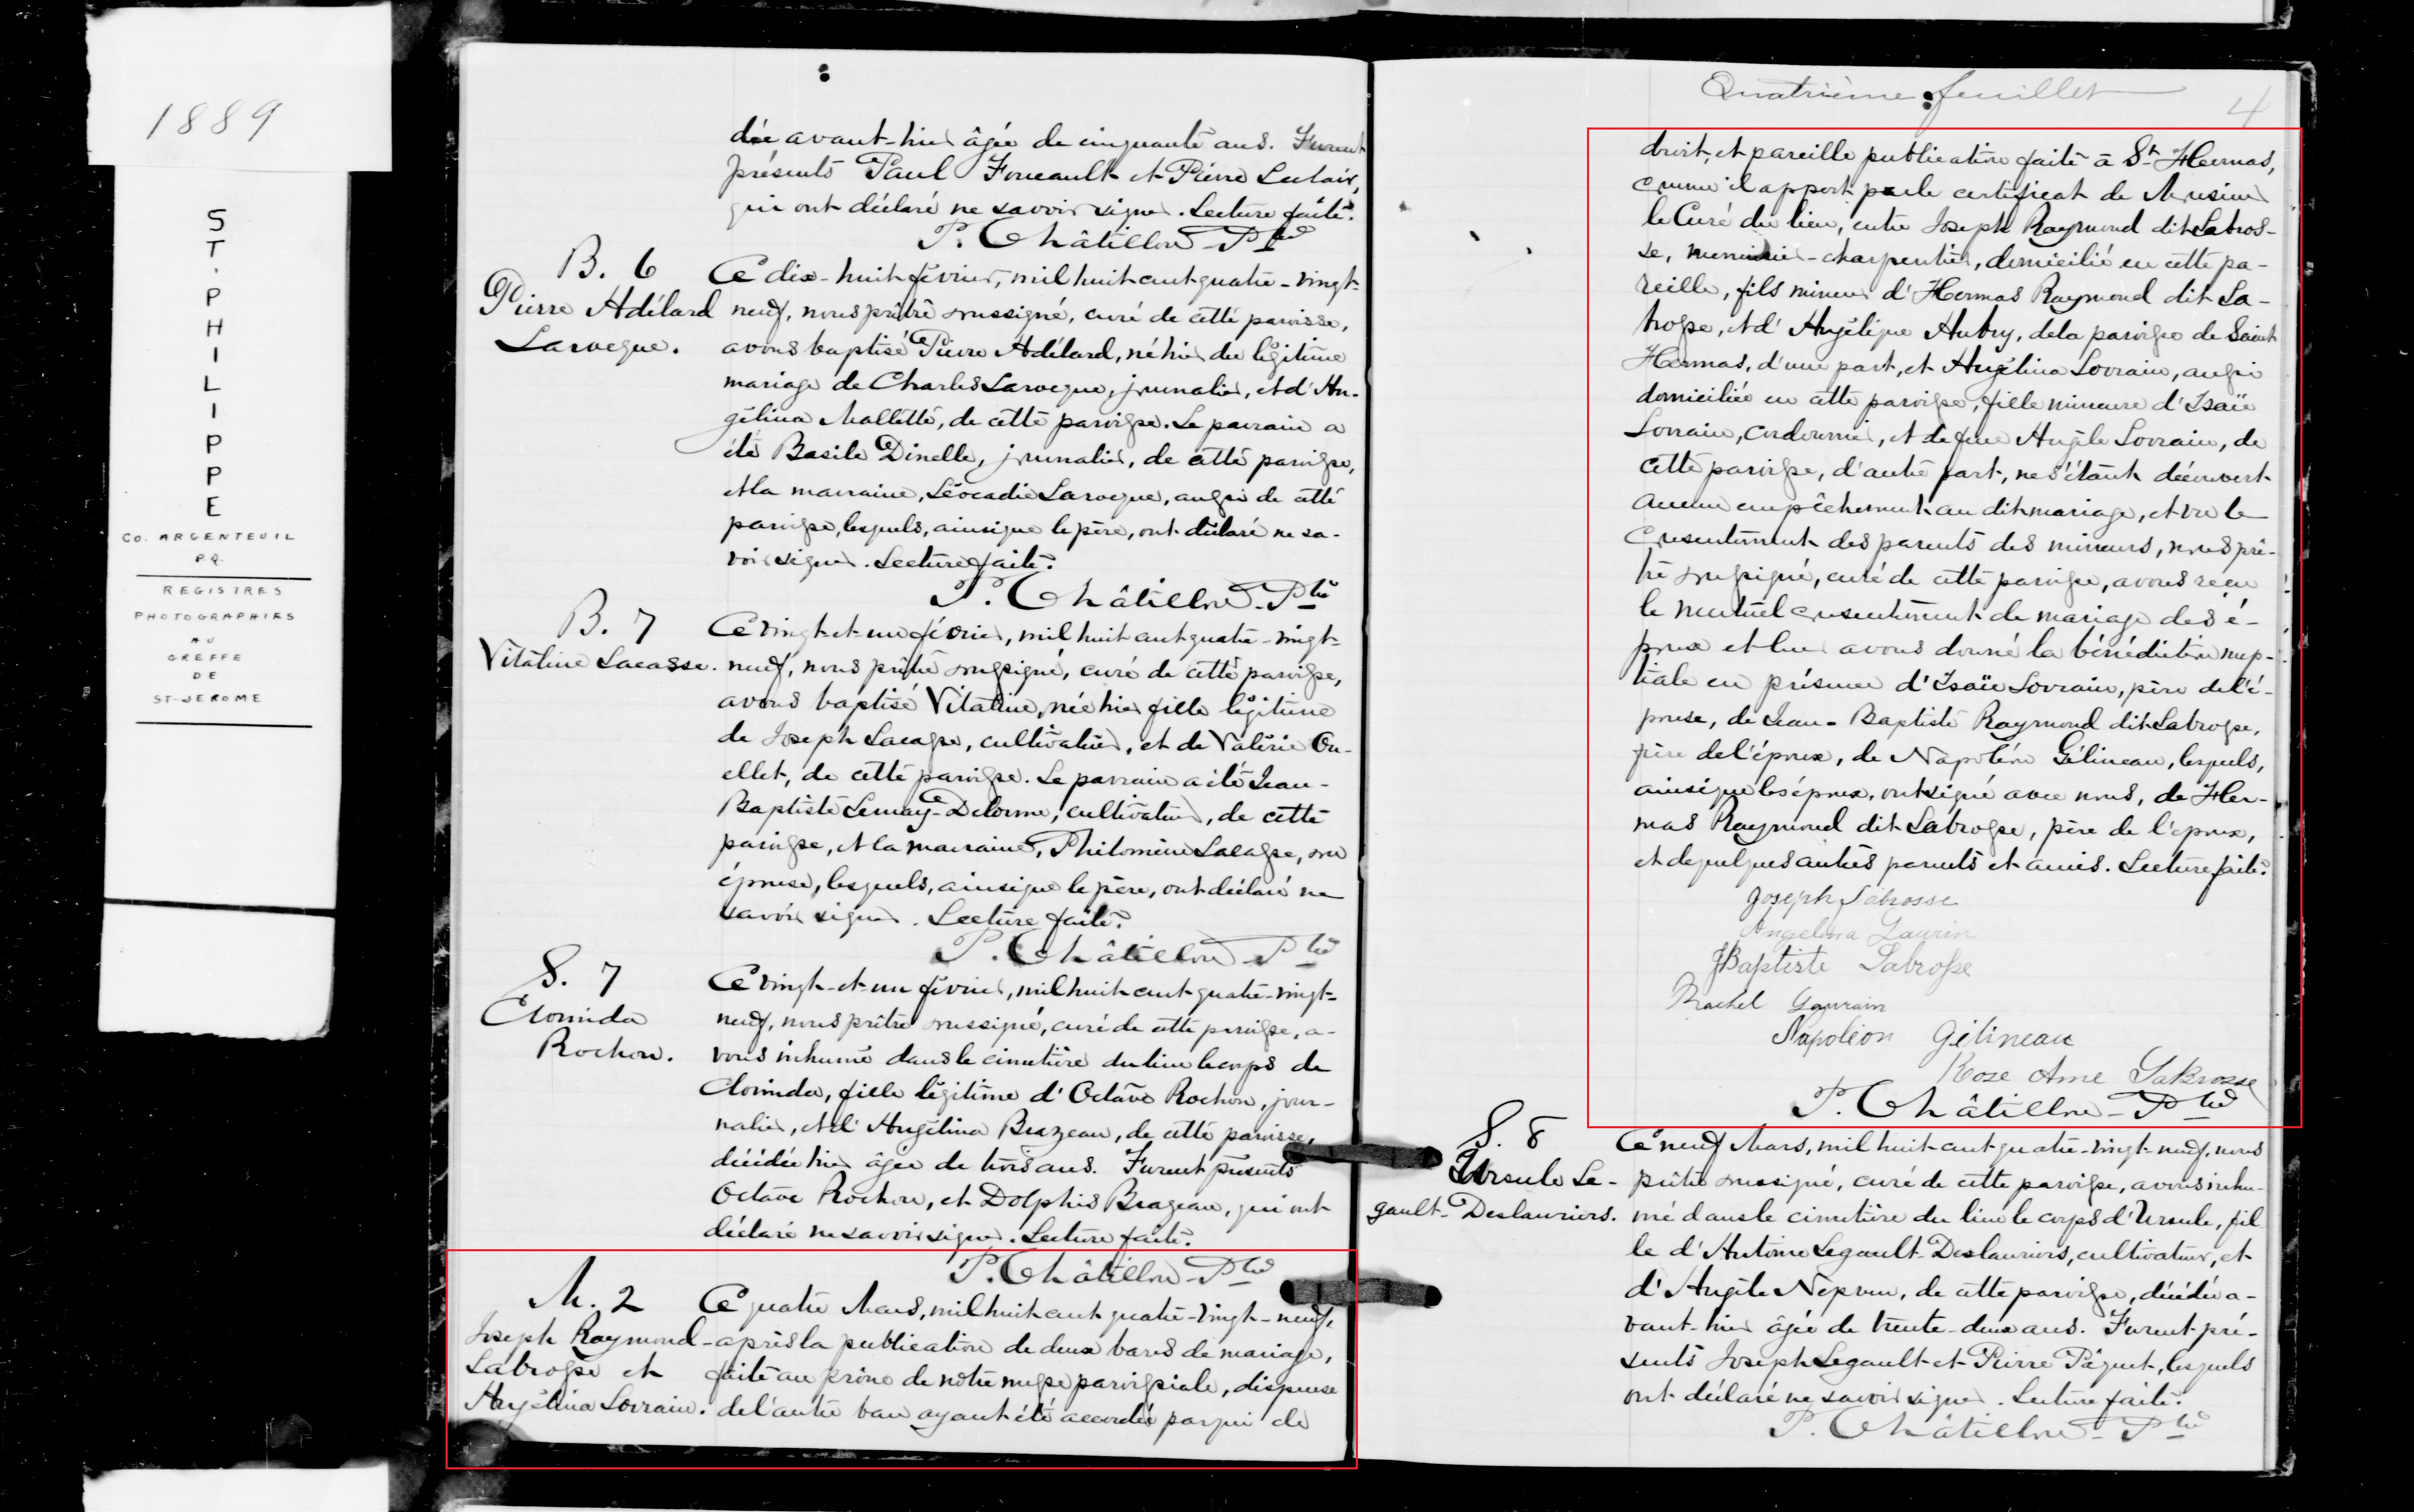 1889
ST. PHILIPPE
CO. ARGENTEUIL
P.Q.
REGISTRES
PHOTOGRAPHIES
AU
GREFFE
DE
ST-JEROME
dée avant-hier âgée de cinquante ans. Furent
présents Paul Foucault et Pierre Leclair,
qui ont déclaré ne savoir signer. Lecture faite.
P. Châtillon Ptre
B. 6
Pierre Adélard
Larocque.
Ce dix-huit février, mil huit cent quatre-vingt-
neuf, nous prêtre soussigné, curé de cette paroisse,
avons baptisé Pierre Adélard, né hier du légitime
mariage de Charles Larocque, journalier, et d'An-
gélina Mallette, de cette paroisse. Le parrain a
été Basile Dinelle, journalier, de cette paroisse,
et la marraine, Léocadie Larocque, aussi de cette
paroisse, lesquels, ainsi que le père, ont déclaré ne sa-
voir signer. Lecture faite.
P. Châtillon Ptre
B. 7
Vitaline Lacasse.
Ce vingt-et-un février, mil huit cent quatre-vingt-
neuf, nous prêtre soussigné, curé de cette paroisse,
avons baptisé Vitaline, née hier fille légitime
de Joseph Lacasse, cultivateur, et de Valérie Ou-
ellet, de cette paroisse. Le parrain a été Jean-
Baptiste Lemay-Delorme, cultivateur, de cette
paroisse, et la marraine, Philomène Lacasse, son
épouse, lesquels, ainsi que le père, ont déclaré ne
savoir signer. Lecture faite.
P. Châtillon Ptre
S. 7
Clorinda
Rochon.
Ce vingt-et-un février, mil huit cent quatre-vingt-
neuf, nous prêtre soussigné, curé de cette paroisse, a-
vons inhumé dans le cimetière du lieu le corps de
Clorinda, fille légitime d'Octave Rochon, jour-
nalier, et d'Angélina Brazeau, de cette paroisse,
décédée hier âgée de trois ans. Furent présents
Octave Rochon, et Dolphis Brazeau, qui ont
déclaré ne savoir signer. Lecture faite.
P. Châtillon Ptre
M. 2
Joseph Raymond-
Labrosse et
Angélina Lorrain.
Ce quatre Mars, mil huit cent quatre-vingt-neuf,
après la publication de deux bans de mariage,
faite au prône de notre messe paroissiale, dispense
de l'autre ban ayant été accordée par qui de
Quatrième feuillet
4
droit, et pareille publication faite à St Hermas,
comme il appert par le certificat de Monsieur
le Curé du lieu, entre Joseph Raymond dit Labros-
se, menuisier-charpentier, domicilié en cette pa-
reille, fils mineur d'Hermas Raymond dit La-
brosse, et d'Angélique Aubry, de la paroisse de Saint
Hermas, d'une part, et Angélina Lorrain, aussi
domiciliée en cette paroisse, fille mineure d'Isaïe
Lorrain, cordonnier, et de feue Angèle Lorrain, de
cette paroisse, d'autre part, ne s'étant découvert
aucun empêchement au dit mariage, et vu le
consentement des parents des mineurs, nous prê-
tre soussigné, curé de cette paroisse, avons reçu
le mutuel consentement de mariage des é-
poux et leur avons donné la bénédiction nup-
tiale en présence d'Isaïe Lorrain, père de l'é-
pouse, de Jean-Baptiste Raymond dit Labrosse,
frère de l'époux, de Napoléon Gélineau, lesquels,
ainsi que les époux, ont signé avec nous, de Her-
mas Raymond dit Labrosse, père de l'époux,
et de quelques autres parents et amis. Lecture faite.
Joseph Labrosse
Angelina Laurin
JBaptiste Labrosse
Rachel Gaurain
Napoléon Gélineau
Rose Ame LaBrosse
P. Châtillon Ptre
S. 8
Ursule Le-
gault-Deslauriers.
Ce neuf Mars, mil huit cent quatre-vingt-neuf, nous
prêtre soussigné, curé de cette paroisse, avons inhu-
mé dans le cimetière du lieu le corps d'Ursule, fil
le d'Antoine Legault-Deslauriers, cultivateur, et
d'Angèle Nepveu, de cette paroisse, décédée a-
vant-hier âgée de trente-deux ans. Furent pré-
sents Joseph Legault et Pierre Paquet, lesquels
ont déclaré ne savoir signer. Lecture faite.
P. Châtillon Ptre